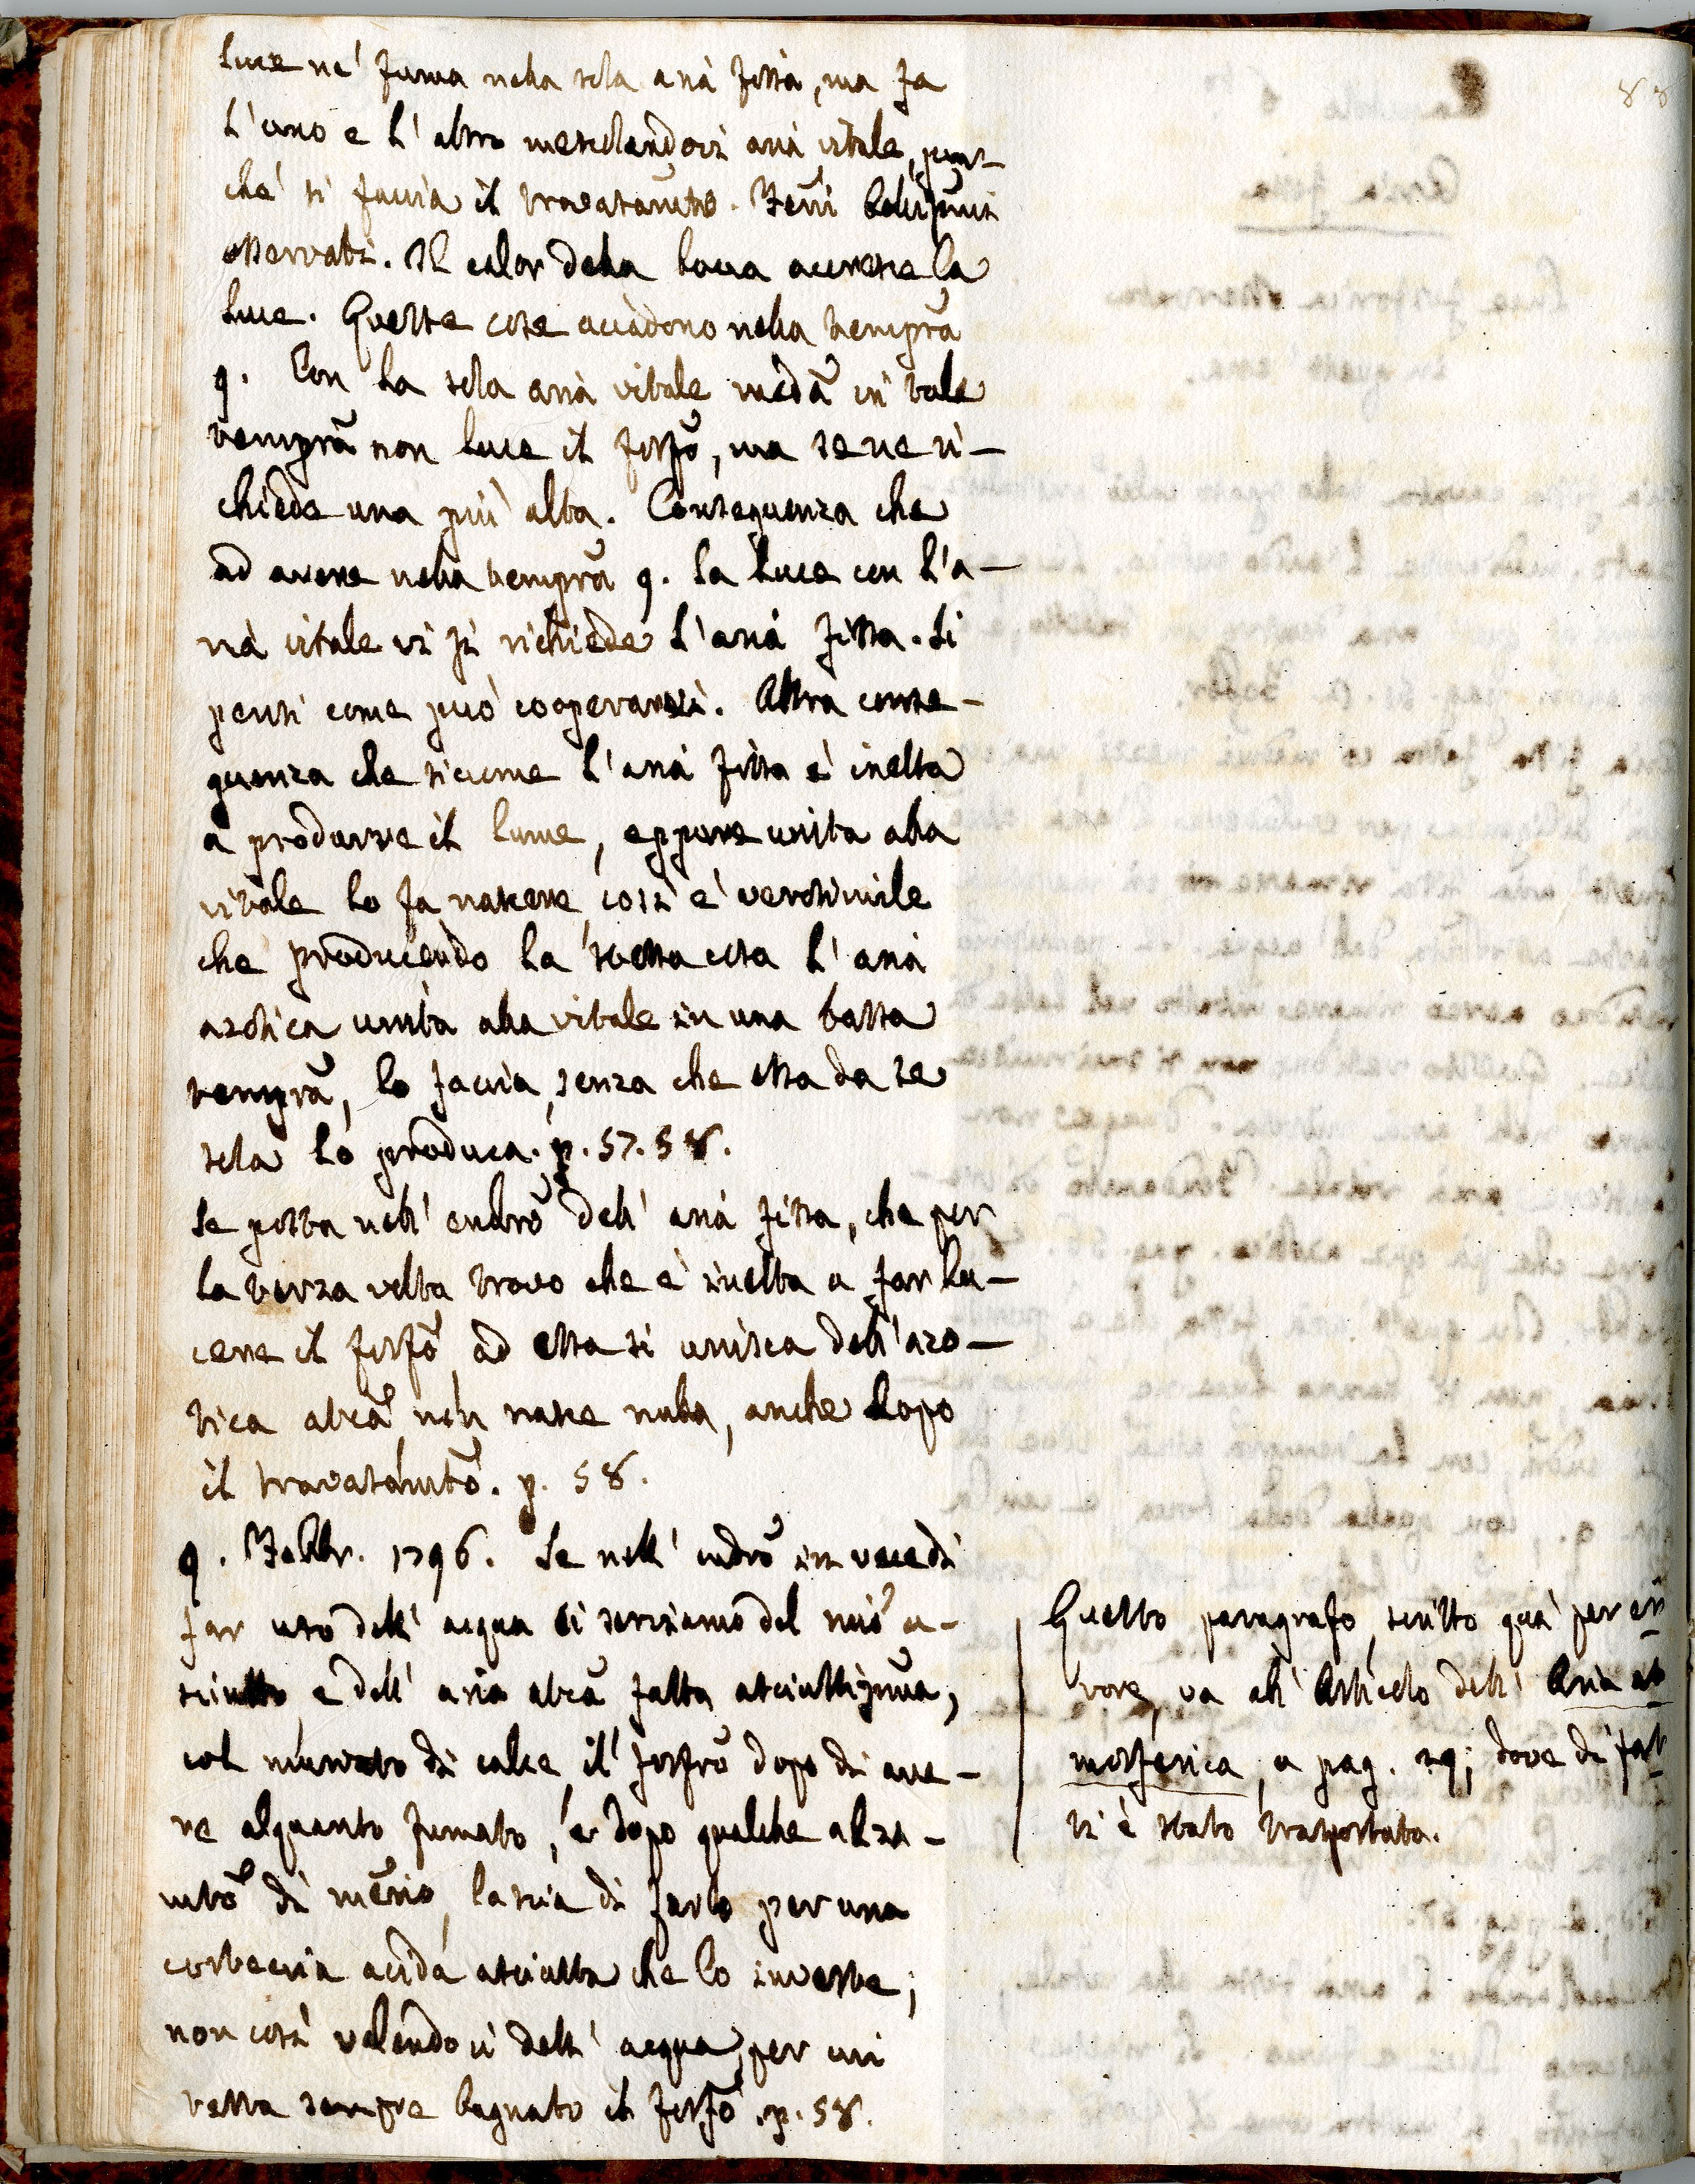 luce né fuma nella sola aria fissa, ma fa
l'uno e l'altro mescolandovi aria vitale, pur-
ché si faccia il travasam̃to. Feñi
osservati. Il calor della bocca accresce la
luce. Queste cose accadono nella temprã
9. Con la sola aria vitale med̃a in tale
temprã non luce il fosfõ, ma se ne ri-
chiede una più alta. Conseguenza che
ad avere nella temprã 9. la luce con l'a-
ria vitale vi si richiede l'aria fissa. Si
pensi come può cooperarvi. Altra conse-
guenza che siccome l'aria fissa è inetta
a produrre il lume, eppure unita alla
vitale lo fa nascere, così è verosimile
che producendo la stessa cosa l'aria
azotica unita alla vitale in una bassa
temprã, lo faccia, senza che essa da se
sola lo produca. p. 57. 58.
Se posta nell' eudrõ dell' aria fissa, che per
la terza volta trovo che è inetta a far lu-
cere il fosfõ, ad essa si unisca dell' azo-
tica atcã, non nasce nulla, anche dopo
il travasam̃tõ. p. 58.
9. Febbr. 1796. Se nell' eudrõ in vece di
far uso dell' acqua ci serviamo del mriõ a-
sciutto e dell' aria atcã fatta asciuttiss̃ma,
col muriato di calce, il fosfrõ dopo di ave-
re alquanto fumato, e dopo qualche alza-
mtõ di mẽrio, lascia di farlo per una
corteccia acida asciutta che lo investe;
non così valendoci dell' acqua, per cui
resta sempre bagnato il fosfõ. p. 58.
Questo paragrafo, scritto quà per er-
rore, va all' Articolo dell' Aria at
mosferica, a pag. 29; dove di fat
ti è stato trasportato.